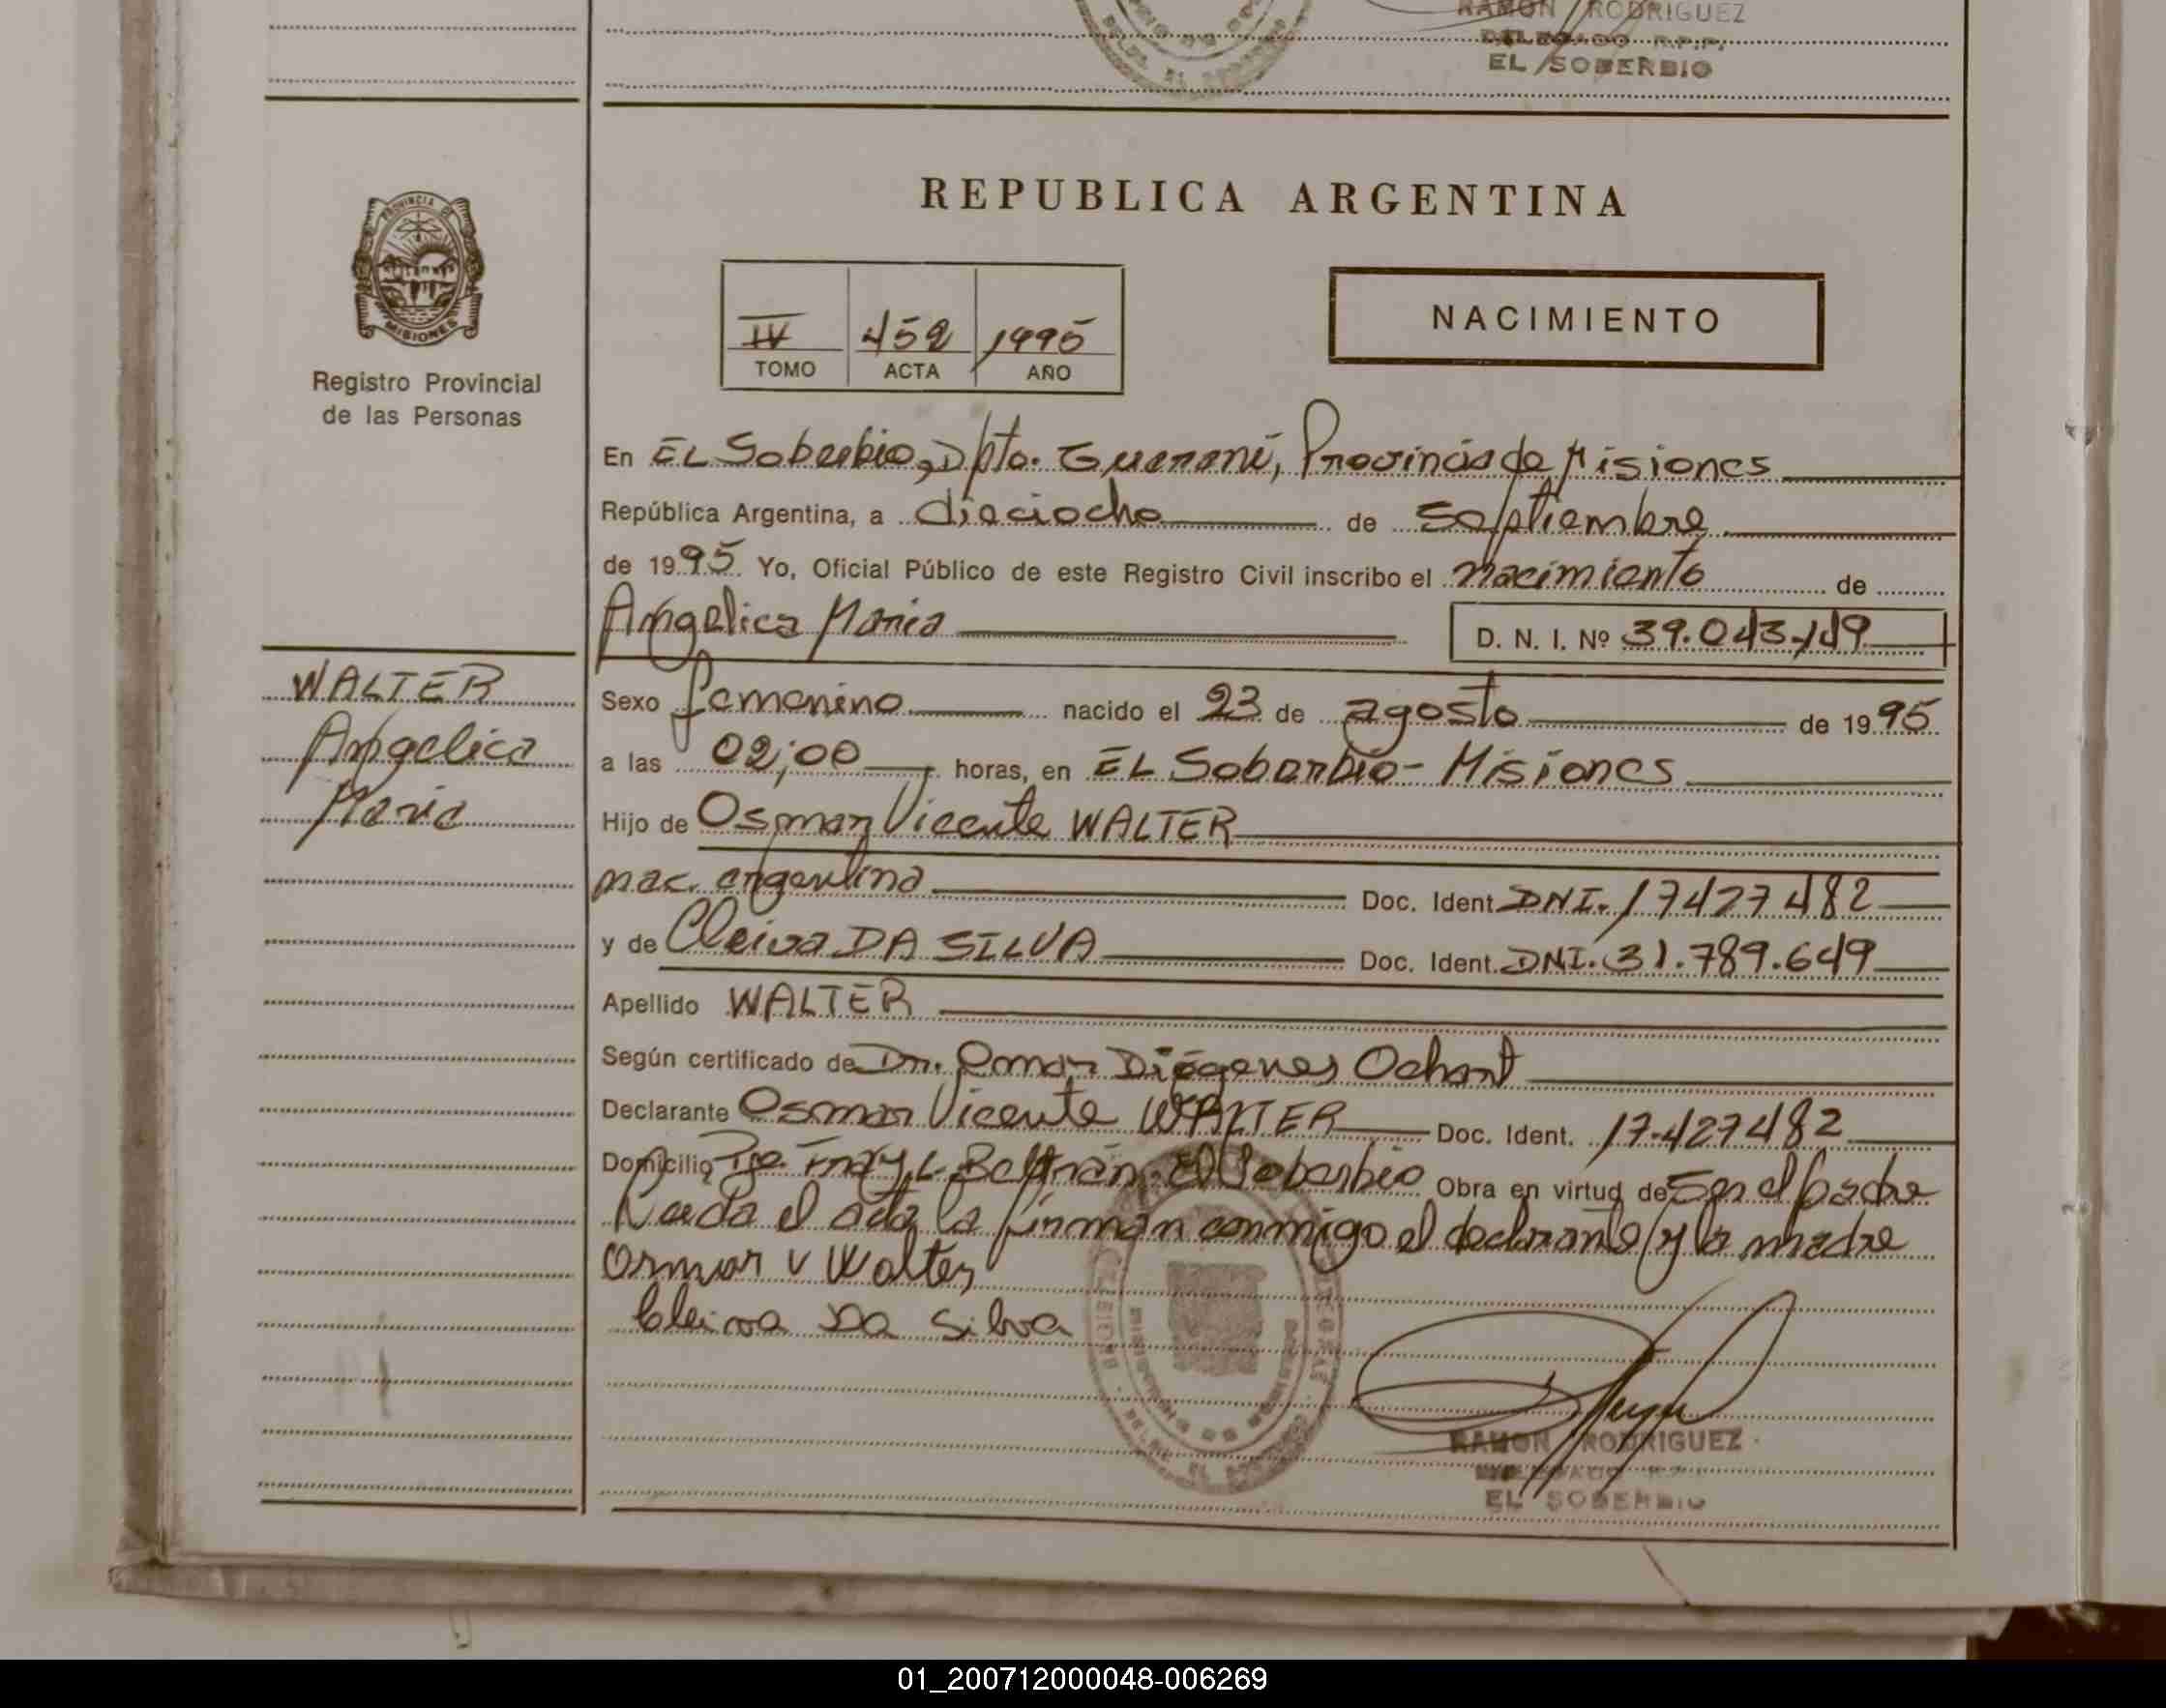 RAMON RODRIGUEZ
DELEGADO R.P.P.
EL SOBERBIO
PROVINCIA DE
MISIONES
Registro Provincial
de las Personas
REPUBLICA ARGENTINA
IV 452 1995
TOMO ACTA AÑO
NACIMIENTO
En EL Soberbio, Dpto. Guarani, Provincia de Misiones
República Argentina, a dieciocho de Septiembre
de 1995 Yo, Oficial Público de este Registro Civil inscribo el nacimiento de
Angelica Maria D. N. I. Nº 39.043.149
WALTER
Angelica
Maria
Sexo femenino nacido el 23 de agosto de 1995
a las 02;00 horas, en EL Soberbio - Misiones
Hijo de Osmar Vicente WALTER
nac. argentina Doc. Ident. DNI. 17427482
y de Cleiva DA SILVA Doc. Ident. DNI. 31.789.649
Apellido WALTER
Según certificado de Dr. Omar Diógenes Ochart
Declarante Osmar Vicente WALTER Doc. Ident. 17.427482
Domicilio Pje. Fray L. Beltrán, El Soberbio Obra en virtud de Ser el padre
Leida el acta la firman conmigo el declarante y la madre
Osmar V Walter
Cleiva Da Silva
RAMON RODRIGUEZ
DELEGADO R.P.
EL SOBERBIO
01_200712000048-006269